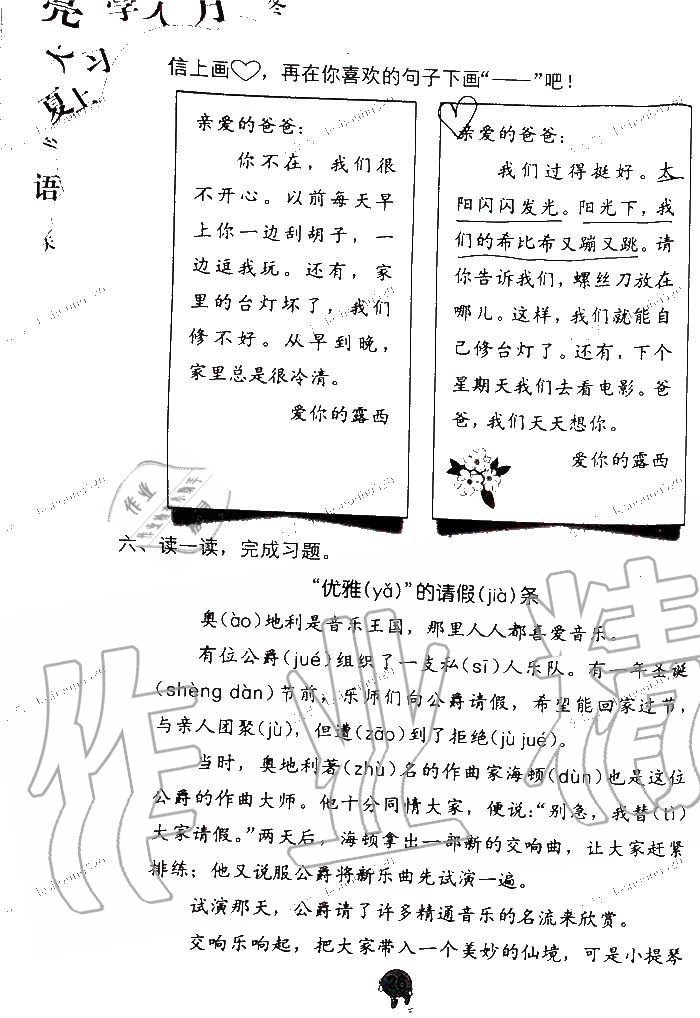 信上画♡，再在你喜欢的句子下画“——”吧！
亲爱的爸爸：
你不在，我们很
不开心。以前每天早
上你一边刮胡子，一
边逗我玩。还有，家
里的台灯坏了，我们
修不好。从早到晚，
家里总是很冷清。
爱你的露西
亲爱的爸爸：
我们过得挺好。太
阳闪闪发光。阳光下，我
们的希比希又蹦又跳。请
你告诉我们，螺丝刀放在
哪儿。这样，我们就能自
己修台灯了。还有，下个
星期天我们去看电影。爸
爸，我们天天想你。
爱你的露西
六、读一读，完成习题。
“优雅(yǎ)”的请假(jià)条
奥(ào)地利是音乐王国，那里人人都喜爱音乐。
有位公爵(jué)组织了一支私(sī)人乐队。有一年圣诞
(shèng dàn)节前，乐师们向公爵请假，希望能回家过节，
与亲人团聚(jù)，但遭(zāo)到了拒绝(jù jué)。
当时，奥地利著(zhù)名的作曲家海顿(dùn)也是这位
公爵的作曲大师。他十分同情大家，便说：“别急，我替(tì)
大家请假。”两天后，海顿拿出一部新的交响曲，让大家赶紧
排练；他又说服公爵将新乐曲先试演一遍。
试演那天，公爵请了许多精通音乐的名流来欣赏。
交响乐响起，把大家带入一个美妙的仙境，可是小提琴
26
作业精